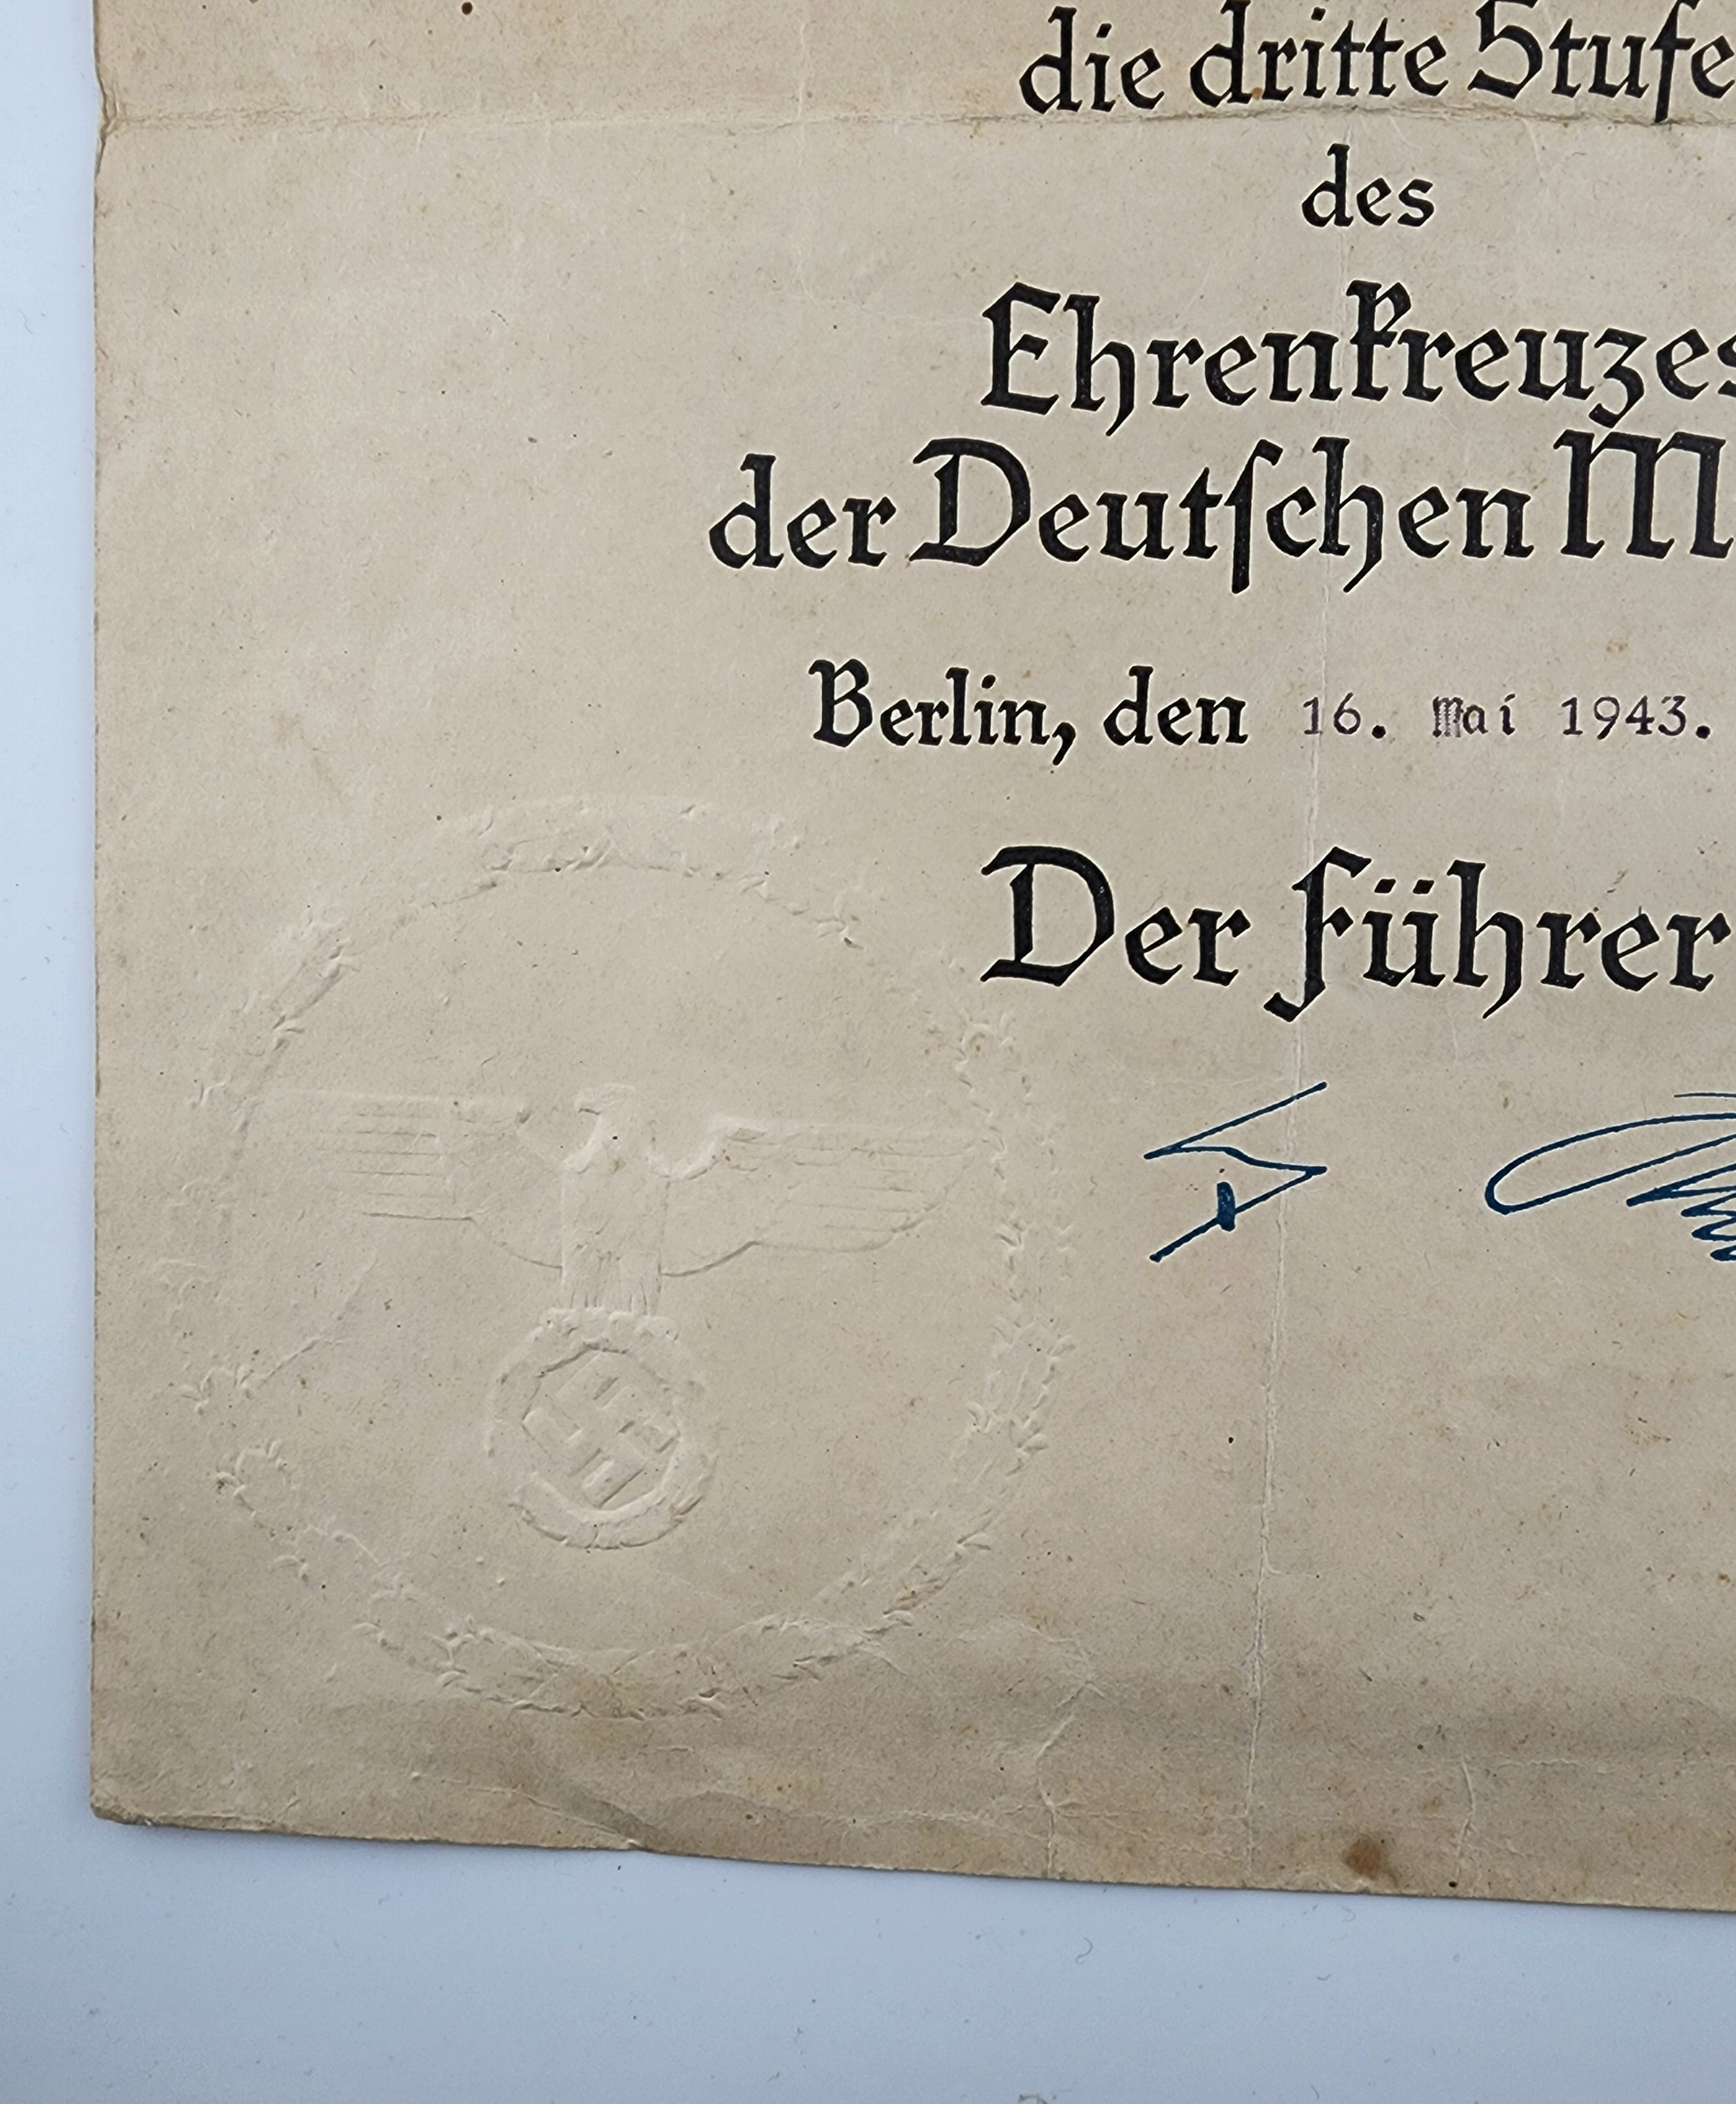 die dritte Stufe
des
Ehrenkreuzes
der Deutſchen M
Berlin, den 16. Mai 1943.
Der Führer